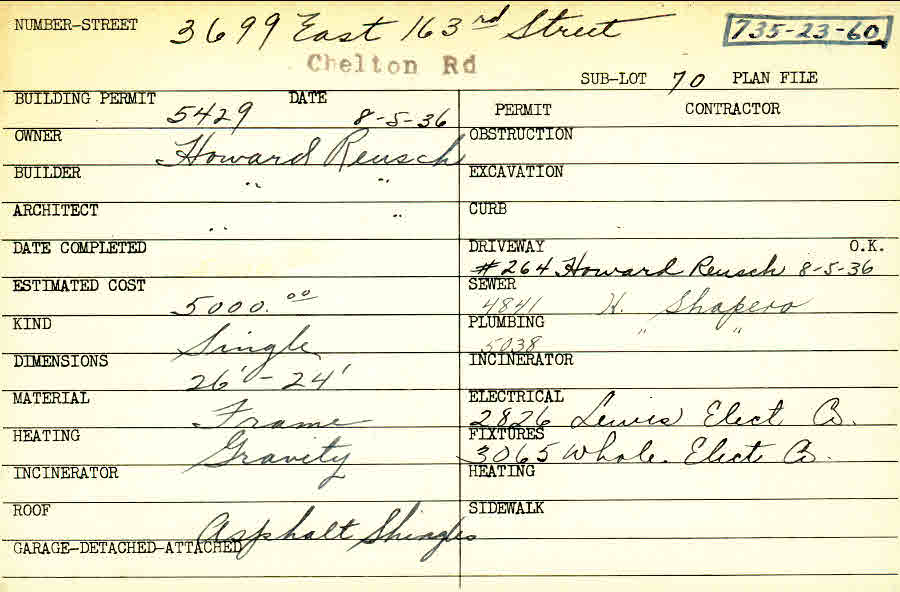 NUMBER-STREET 3699 East 163rd Street 735-23-60
Chelton Rd
SUB-LOT 70 PLAN FILE
BUILDING PERMIT 5429 DATE 8-5-36
OWNER Howard Reusch
BUILDER " "
ARCHITECT " "
DATE COMPLETED
ESTIMATED COST 5000.00
KIND Single
DIMENSIONS 26'-24'
MATERIAL Frame
HEATING Gravity
INCINERATOR
ROOF Asphalt Shingles
GARAGE-DETACHED-ATTACHED
PERMIT CONTRACTOR
OBSTRUCTION
EXCAVATION
CURB
DRIVEWAY O.K.
#264 Howard Reusch 8-5-36
SEWER
4841 H. Shapero
PLUMBING
5038 " "
INCINERATOR
ELECTRICAL
2826 Lewis Elect. Co.
FIXTURES
3065 Whole. Elect Co.
HEATING
SIDEWALK